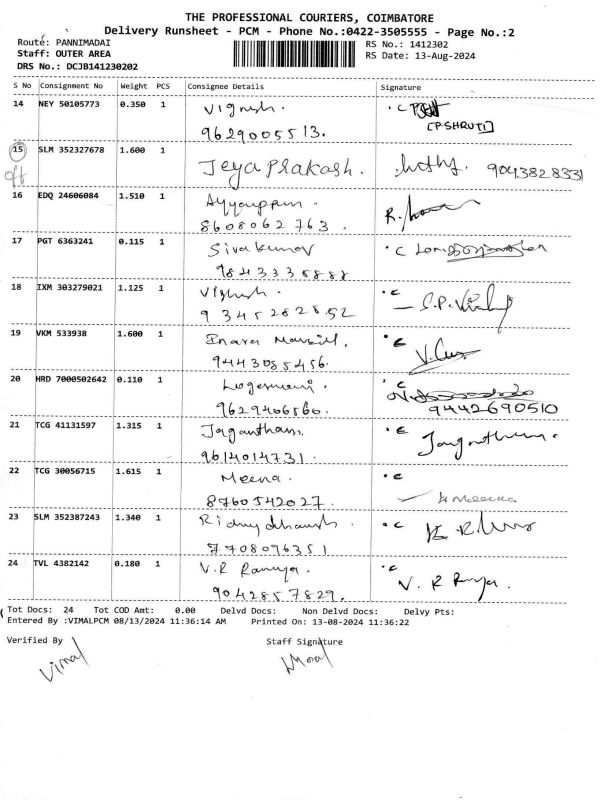 THE PROFESSIONAL COURIERS, COIMBATORE
Delivery Runsheet - PCM - Phone No.:0422-3505555 - Page No.:2
Route: PANNIMADAI
Staff: OUTER AREA
DRS No.: DCJB141230202
RS No.: 1412302
RS Date: 13-Aug-2024
S No Consignment No Weight PCS Consignee Details Signature
14 NEY 50105773 0.350 1 Vignesh. C
9629005513. [P.SHRUTI]
15 SLM 352327678 1.600 1 Jeyaprakash. 9043828331
16 EDQ 24606084 1.510 1 Ayyappan.
8608062763.
17 PGT 6363241 0.115 1 Sivakumar C
9843335888
18 IXM 303279021 1.125 1 Vignesh. C
9345282852
19 VKM 533938 1.600 1 C
9443085456.
20 HRD 7000502642 0.110 1 C
9629406860. 9442690510
21 TCG 41131597 1.315 1 C
9614014731.
22 TCG 30056715 1.615 1 Meena. C
8760542027. Meena
23 SLM 352387243 1.340 1 C
7708096351
24 TVL 4382142 0.180 1 V.R Ramya. C V. R Ramya.
9042857829.
Tot Docs: 24 Tot COD Amt: 0.00 Delvd Docs: Non Delvd Docs: Delvy Pts:
Entered By :VIMALPCM 08/13/2024 11:36:14 AM Printed On: 13-08-2024 11:36:22
Verified By Staff Signature
Vimal